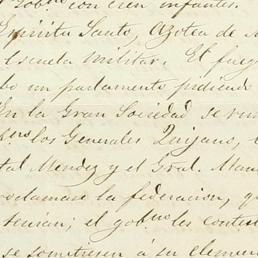 gob.no con cien infantes.
Espiritu Santo, Azotea de
Escuela Militar. El fueg
bo un parlamento pidiendo
En la Gran Sociedad se reu
los Generales Quijano,
tal Mendez y el Gral.
roclamase la federacion, qu
tenian; el gob.no les contes
se sometiesen á su clemen